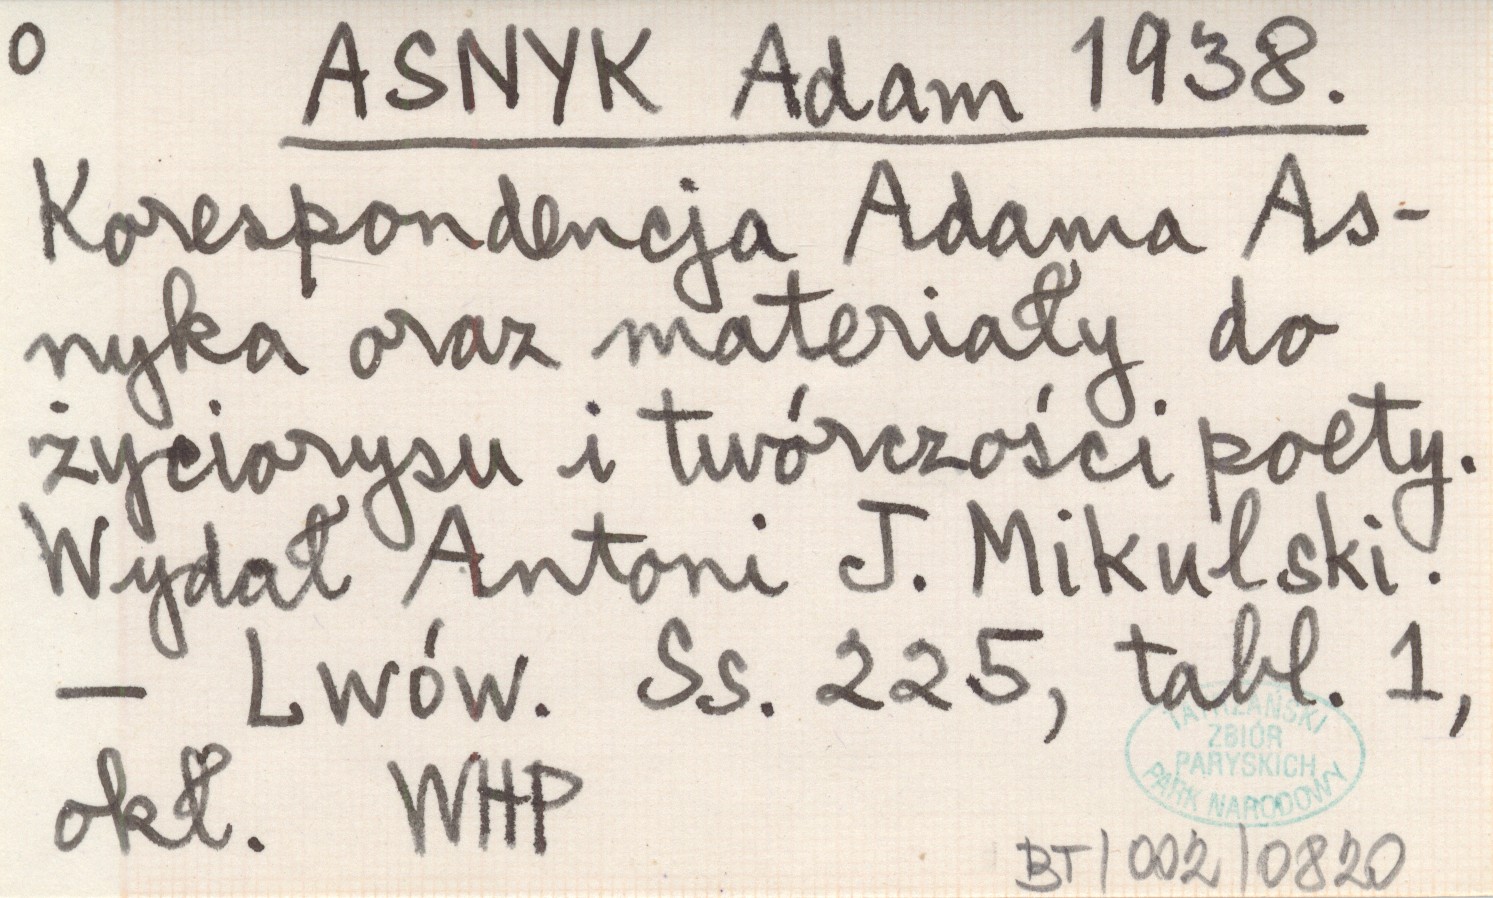 o ASNYK Adam 1938.
Korespondencja Adama As-
nyka oraz materiały do
życiorysu i twórczości poety.
Wydał Antoni J. Mikulski.
— Lwów. Ss. 225, tabl. 1,
okł. WHP
TATRZAŃSKI
ZBIÓR
PARYSKICH
PARK NARODOWY
BT/002/0820